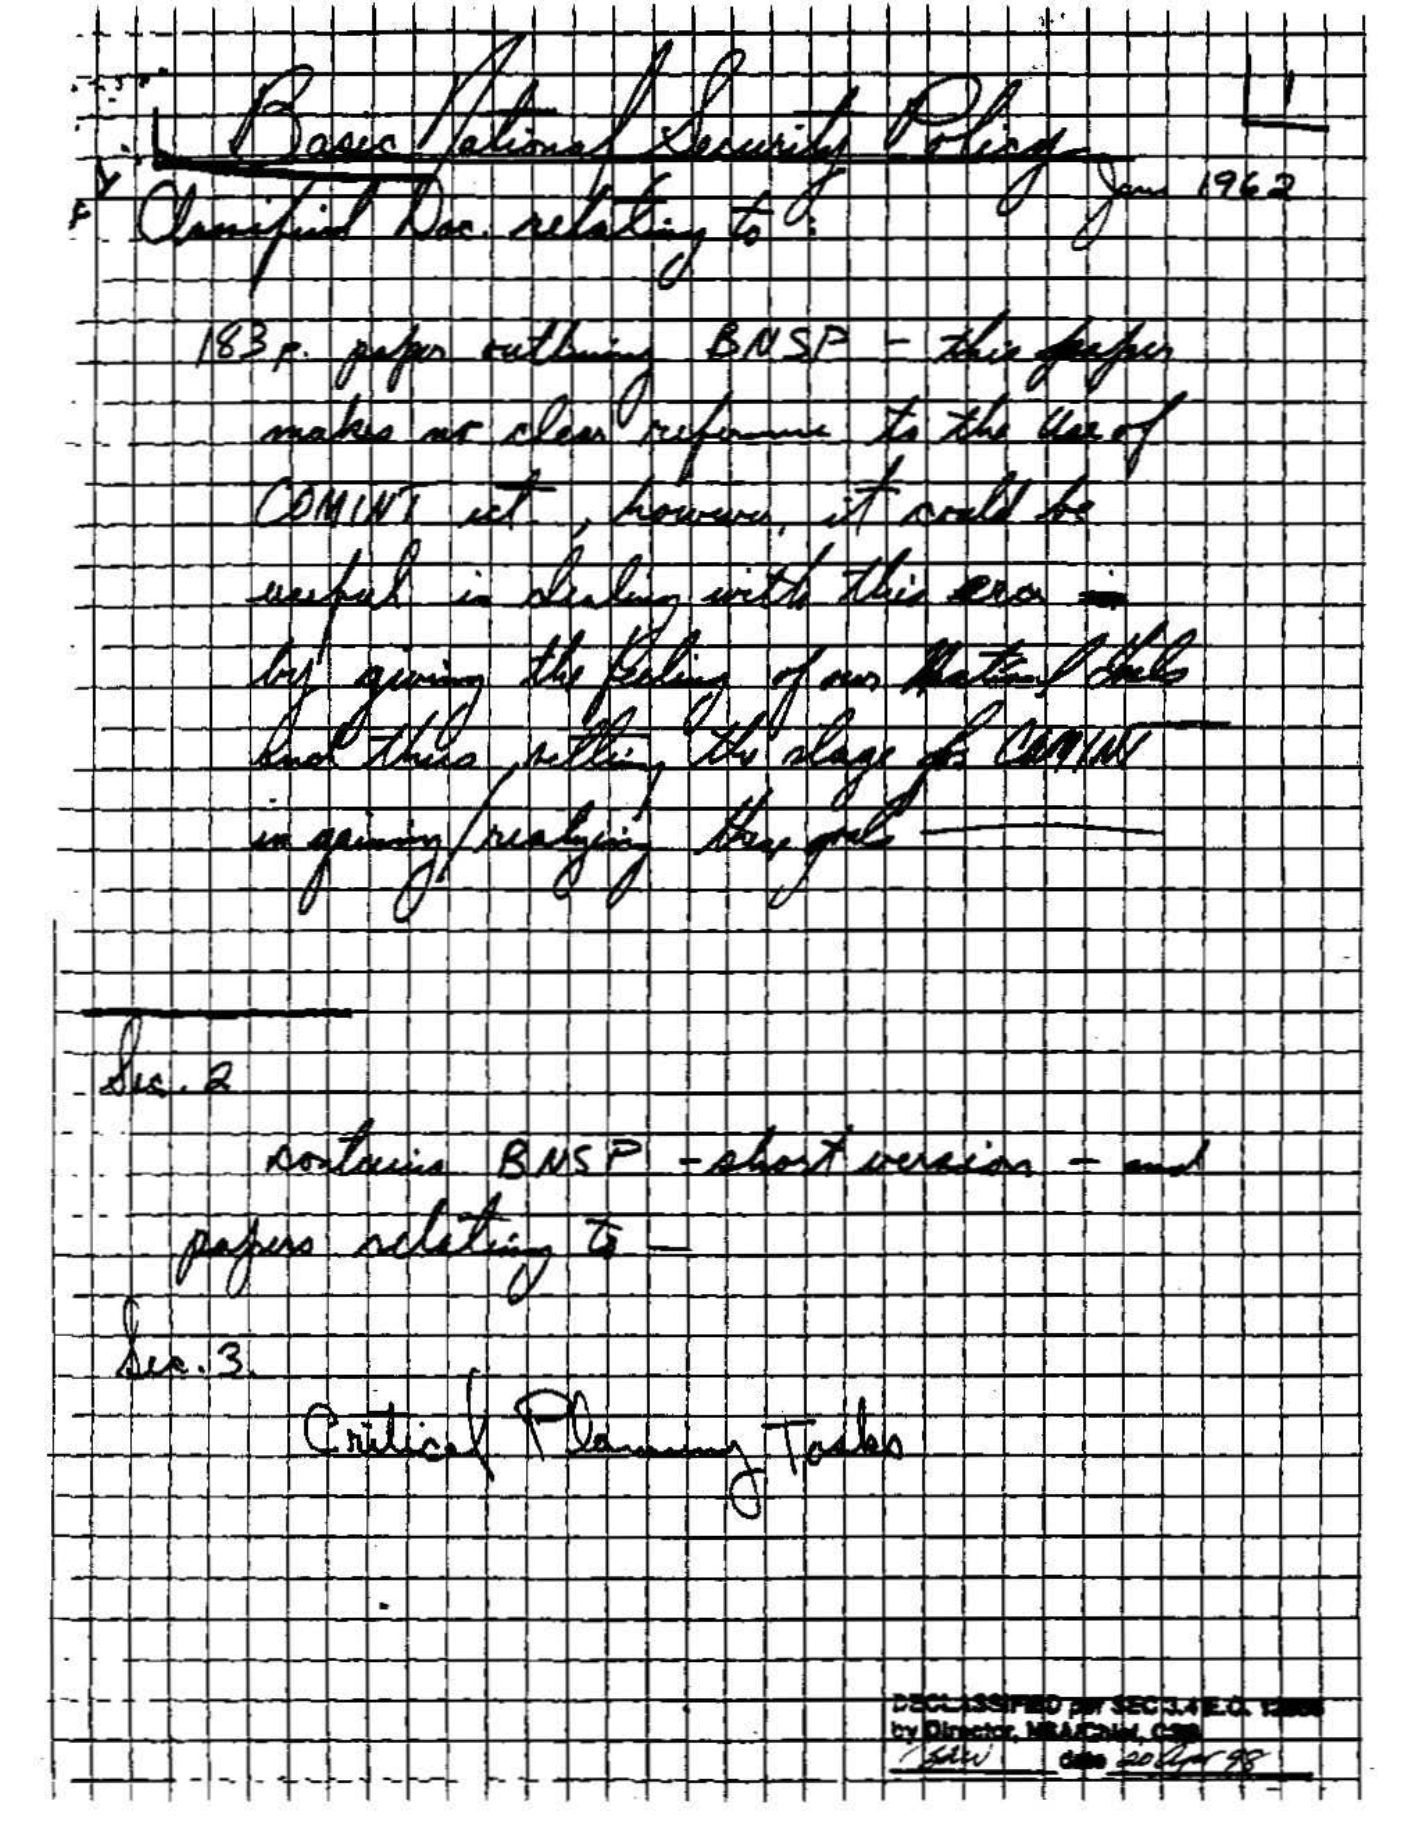 Basic National Security Policy
Jan 1962
Classified Doc. relating to :
183 p. paper outlining BNSP - this paper
makes no clear reference to the use of
COMINT ect , however, it could be
useful in dealing with this era
by giving the feeling of our National Goals
and thus setting the stage for COMINT
in gaining/realizing these goals
Sec. 2
contains BNSP - short version - and
papers relating to —
Sec. 3.
Critical Planning Tasks
DECLASSIFIED per SEC 3.4 E.O.
by Director, NSA/Chief, CSS
date 20 Apr 98